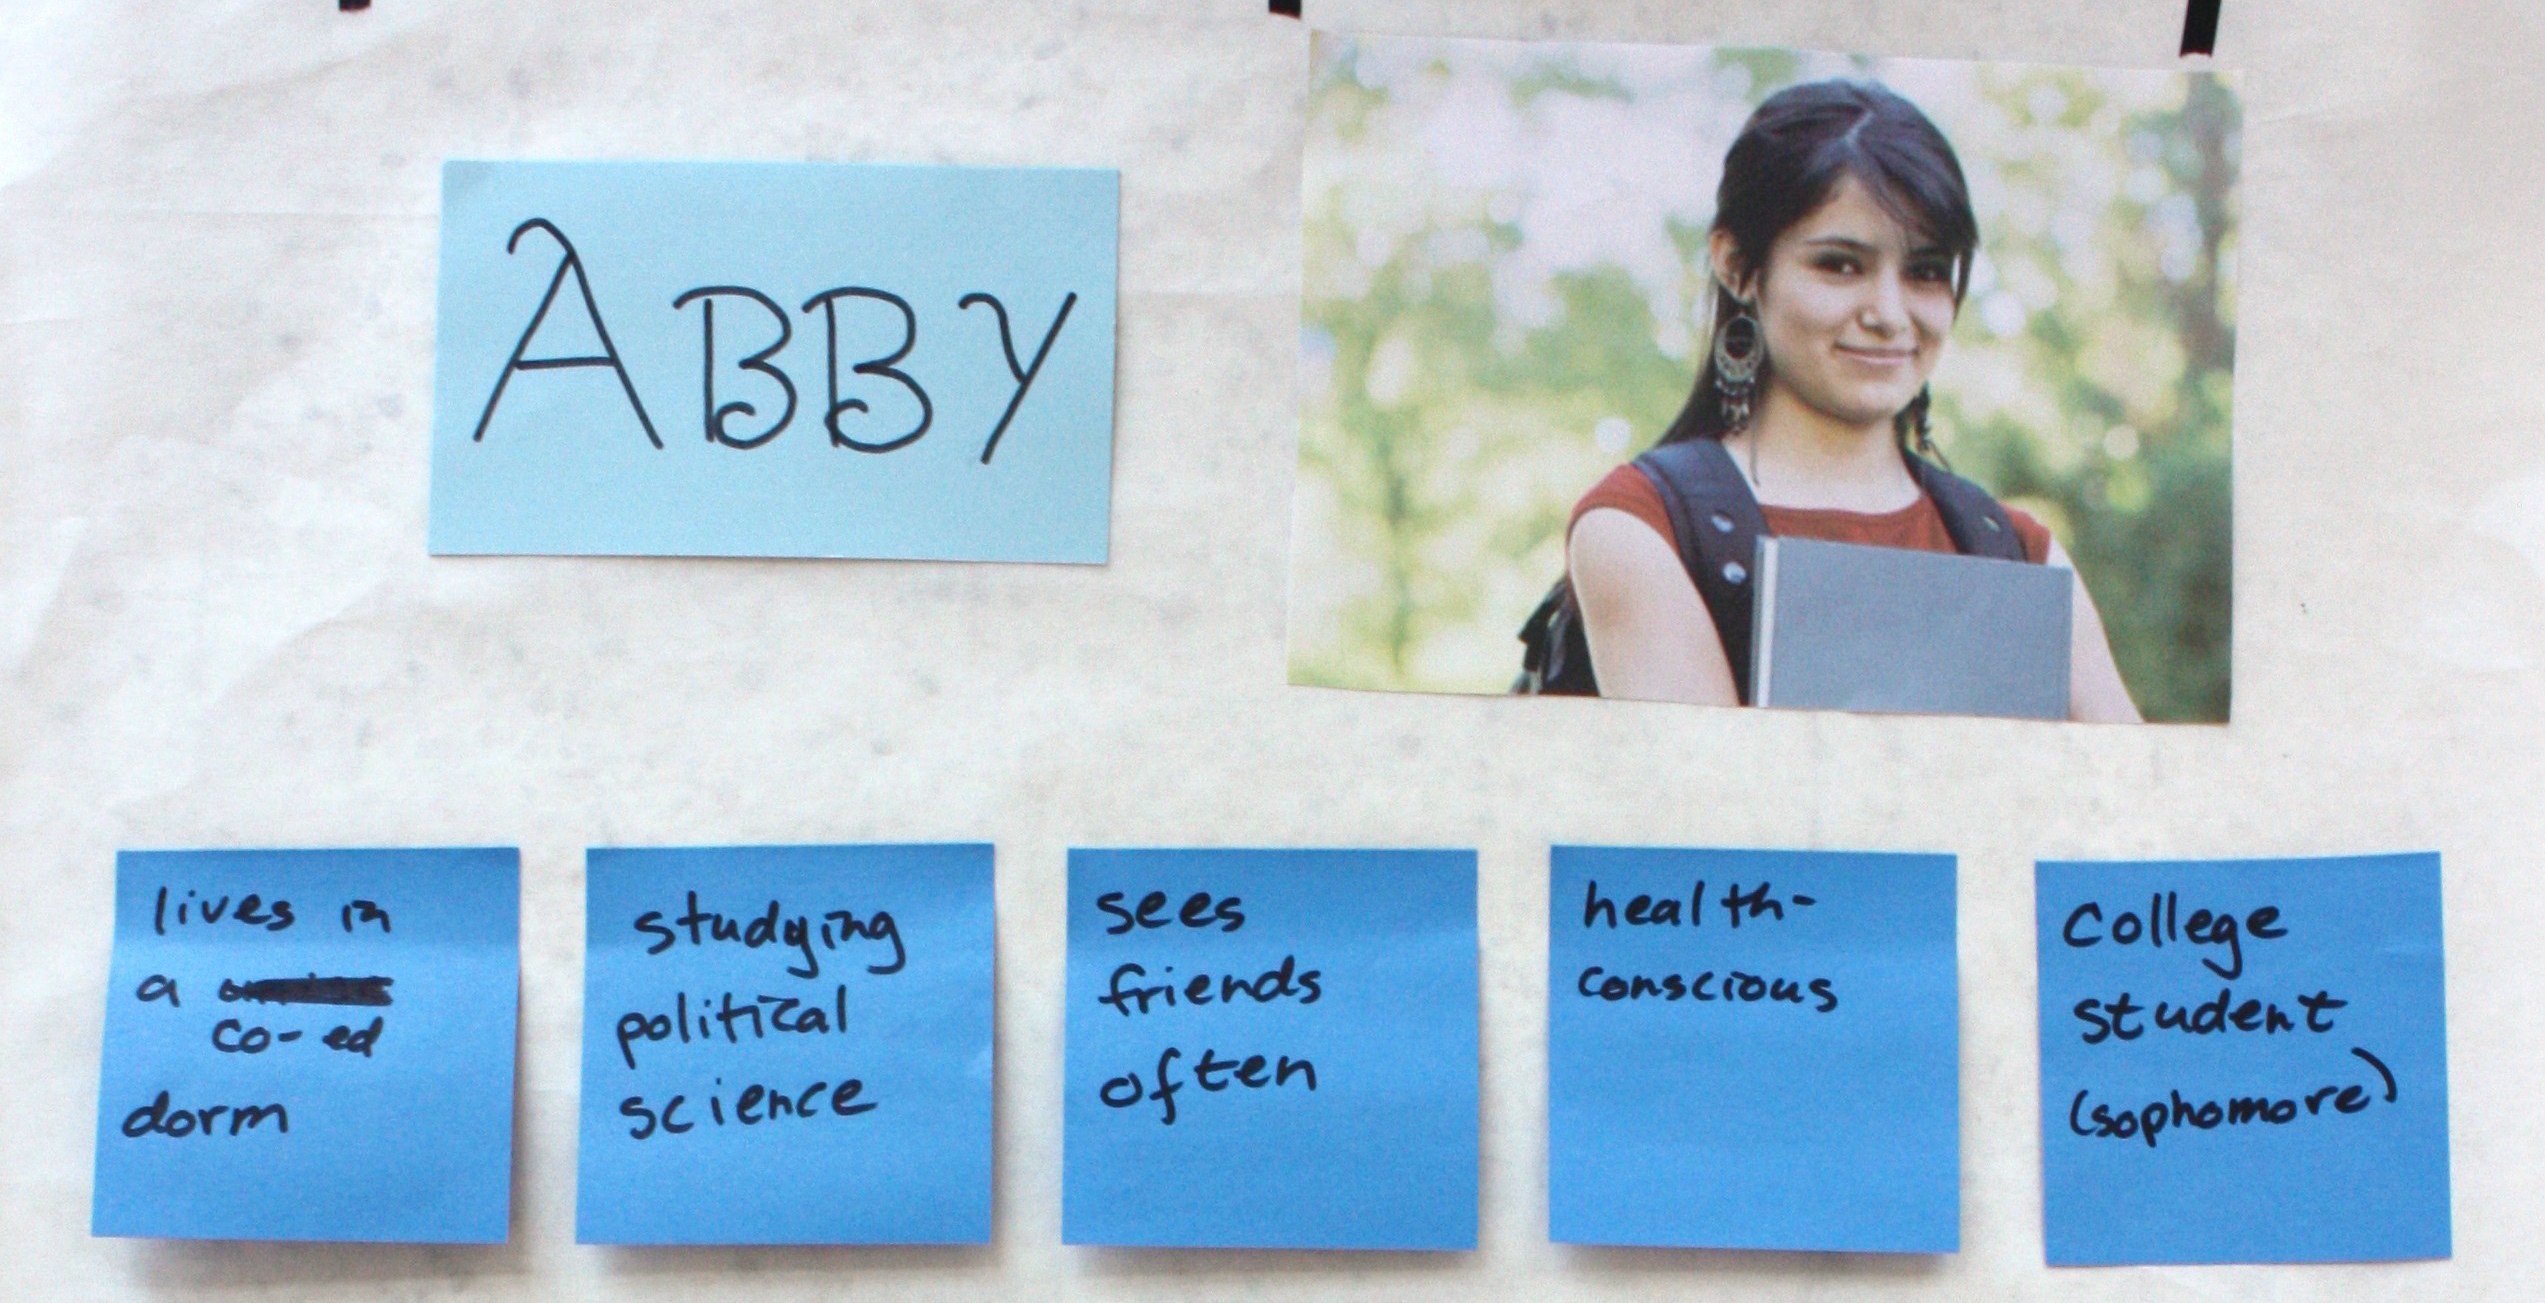 ABBY
lives in
a
co-ed
dorm
studying
political
science
sees
friends
often
health-
conscious
College
student
(sophomore)